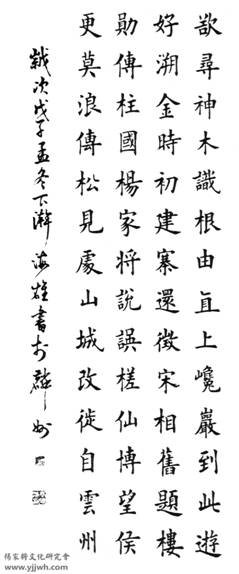 欲尋神木識根由直上巉巖到此遊
好溯金時初建寨還徵宋相舊題樓
勛傳柱國楊家將說誤槎仙博望侯
更莫浪傳松見處山城改徙自雲州
歲次戊子孟冬下澣海雄書於麟州
楊家將文化研究會
www.yjjwh.com